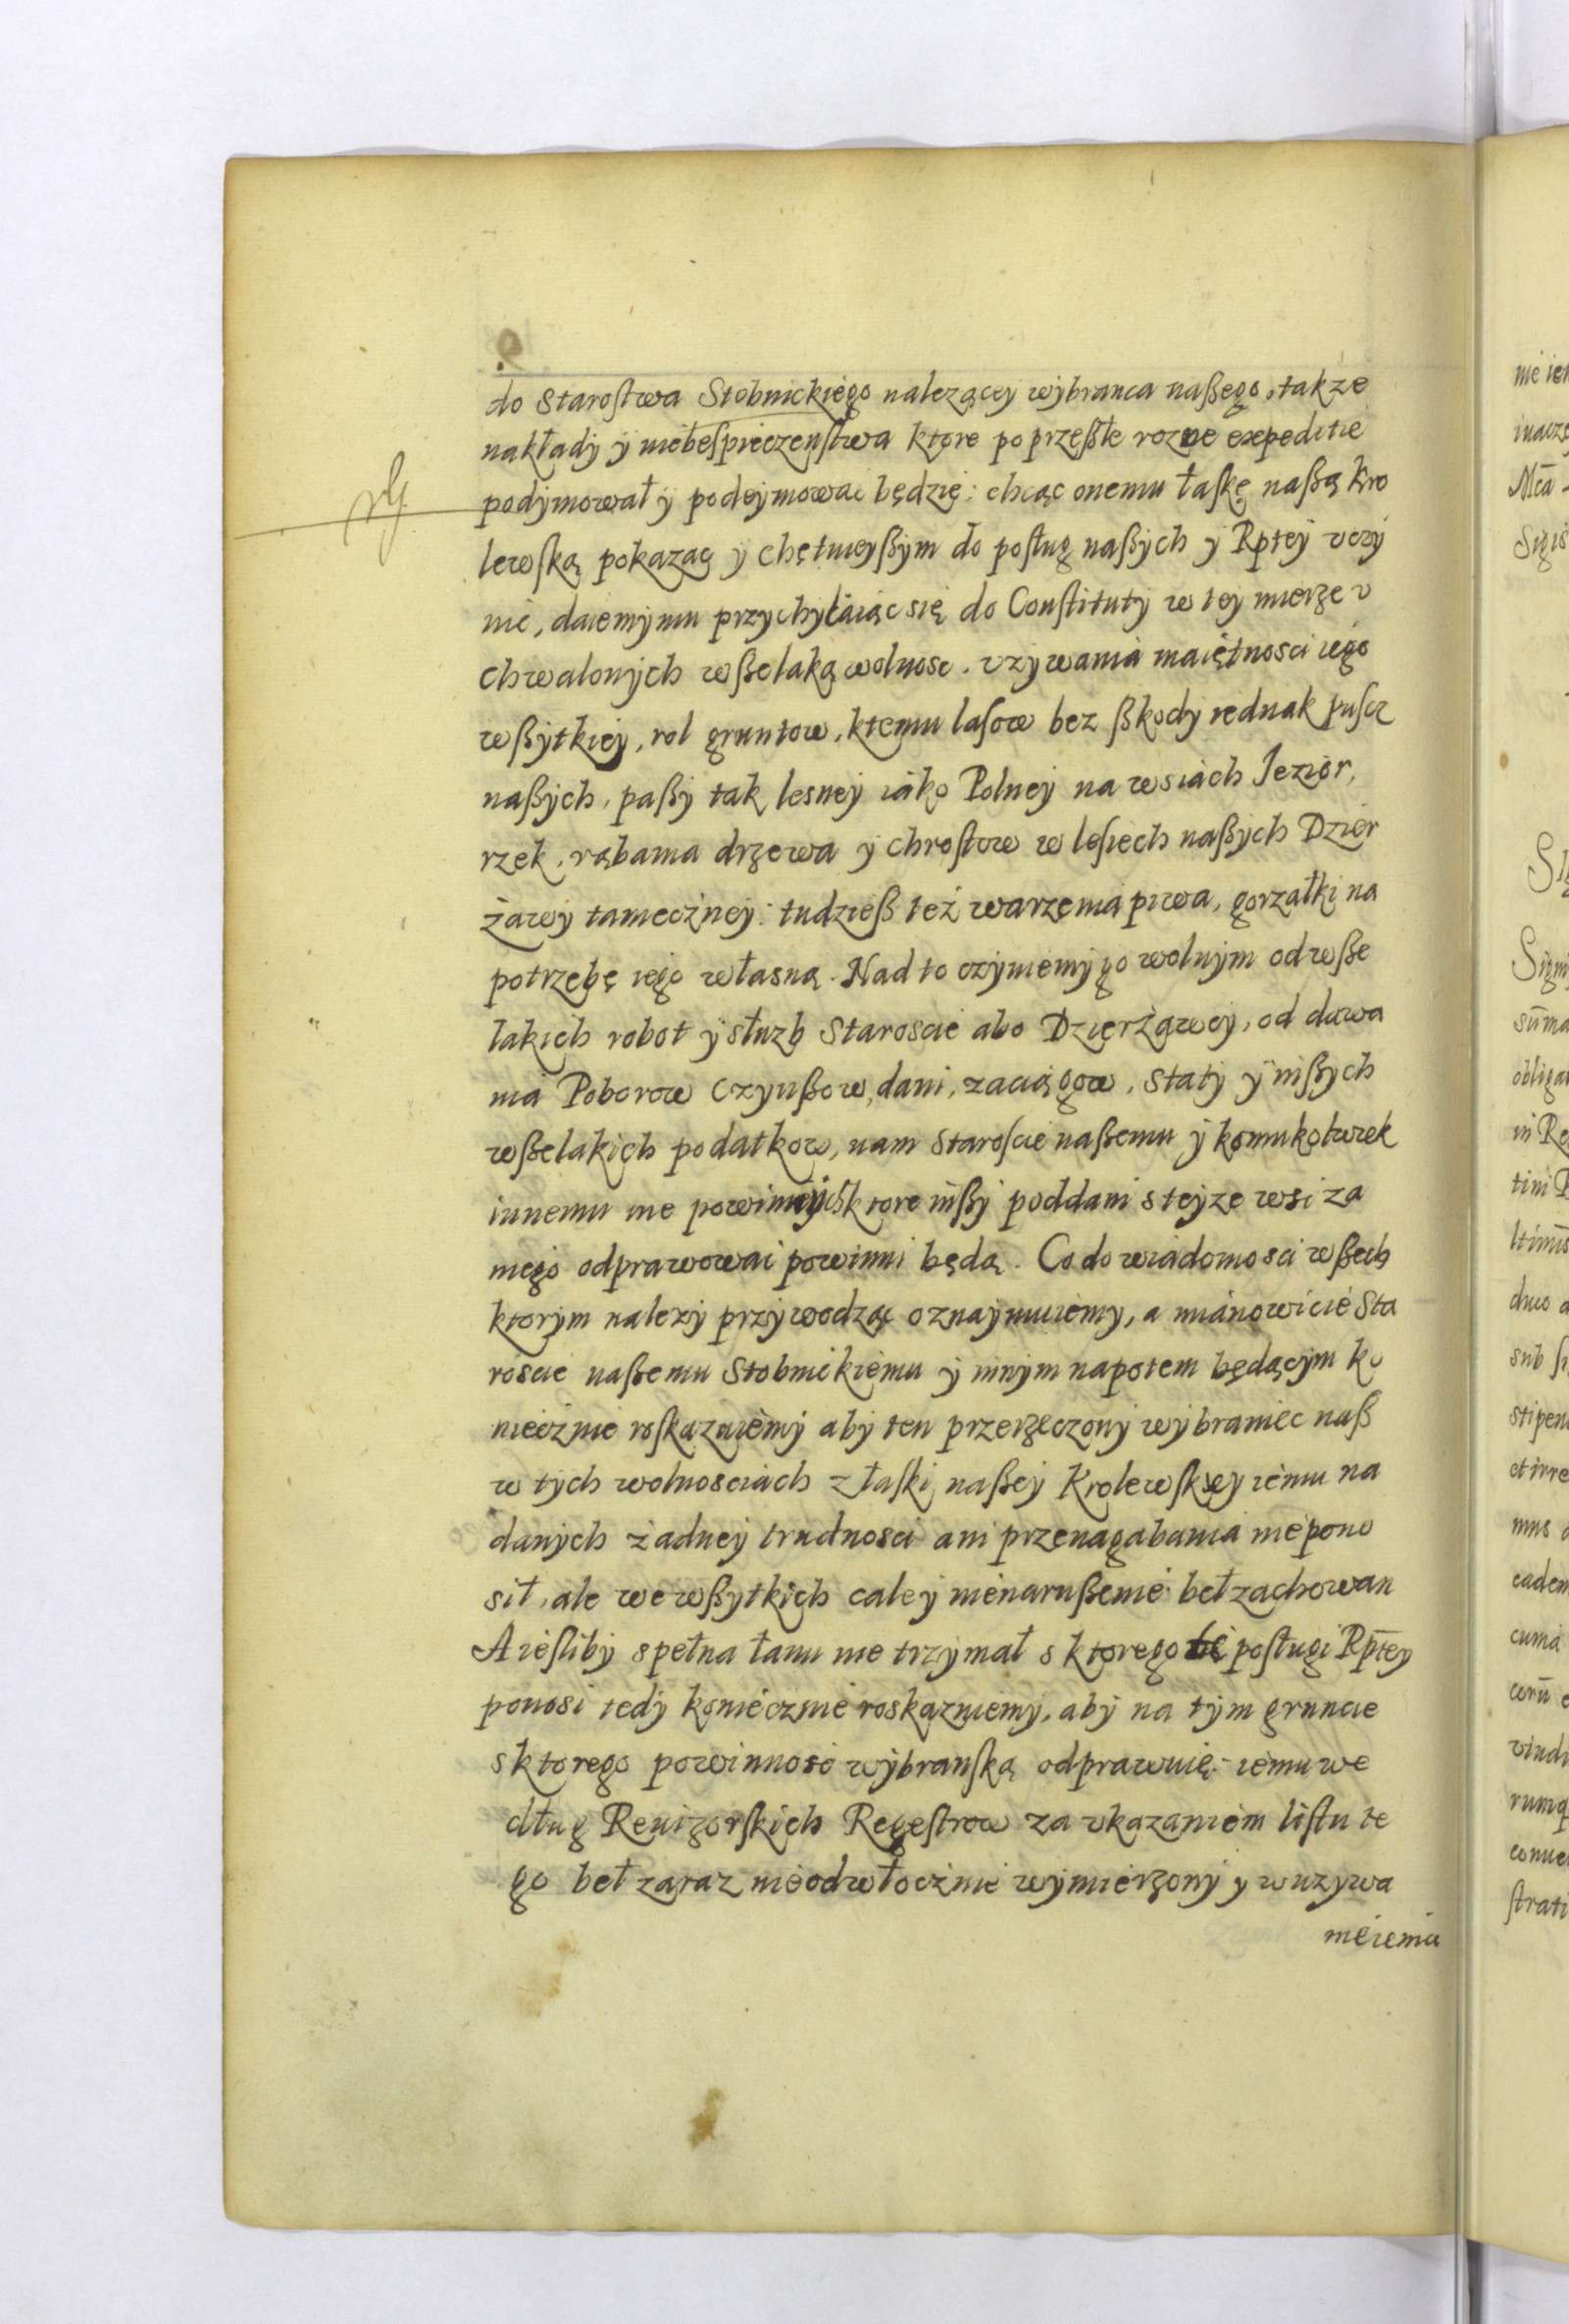 do Staroſtwa Stobnickiego nalezącey wybranca naßego, takze
nakłady y niebeſpieczenſtwa ktore po przeßłe rozne expeditie
podymował y podeymowac będzie: chcąc onemu łaſkę naßą Kro
lewſką pokazac y chętnieyßym do poſług naßych y Rptey vczy
nic, daiemy mu przychylaiąc się do Conſtituty w tey mierze v
chwalonych wßelaką wolnosc. vzywania maiętnosci iego
wßytkiey, rol gruntow, ktemu laſow bez ßkody iednak puſcz
naßych, paßy tak lesney iako Polney na wsiach Jezior,
rzek, rąbania drzewa y chroſtow w leſiech naßych Dzier
żawy tameczney: tudzieß też warzenia piwa, gorzałki na
potrzebę iego własną. Nad to czyniemy go wolnym od wße
lakich robot y słuzb Staroscie abo Dzierżawcy, od dawa
nia Poborow Czynßow, dani, zaciągow, Staty y inßych
wßelakich podatkow, nam Staroſcie naßemu y komukolwiek
innemu nie powinnych ktore inßy poddani s teyze wsi za
niego odprawowac powinni będą. Co do wiadomosci wßech
ktorym nalezy przywodząc oznaymuiemy, a mianowicie Sta
roscie naßemu Stobnickiemu y innym napotem będącym ko
niecznie roſkazuiemy aby ten przerzeczony wybraniec naß
w tych wolnosciach z łaſki naßey Krolewſkiey iemu na
danych żadney trudnosci ani przenagabania nie pono
sił, ale we wßytkich caley nienarußenie beł zachowan
A ieſliby spełna łanu nie trzymał s ktorego te poſługi Rptey
ponosi tedy koniecznie roskazuiemy, aby na tym gruncie
s ktorego powinnosc wybranſką odprawuie iemu we
dług Reuizorſkich Regeſtrow za vkazaniem liſtu te
go beł zaraz nieodwłocznie wymierzony y w uzywa
nie iemu
nie ie
inacz
Mca
Sigis
Sigm
suma
obliga
in Re
tini
ltimis
duo
sub
stipen
et irre
mus
eadem
cuma
coru
vindi
rumq
conue
ſtrati